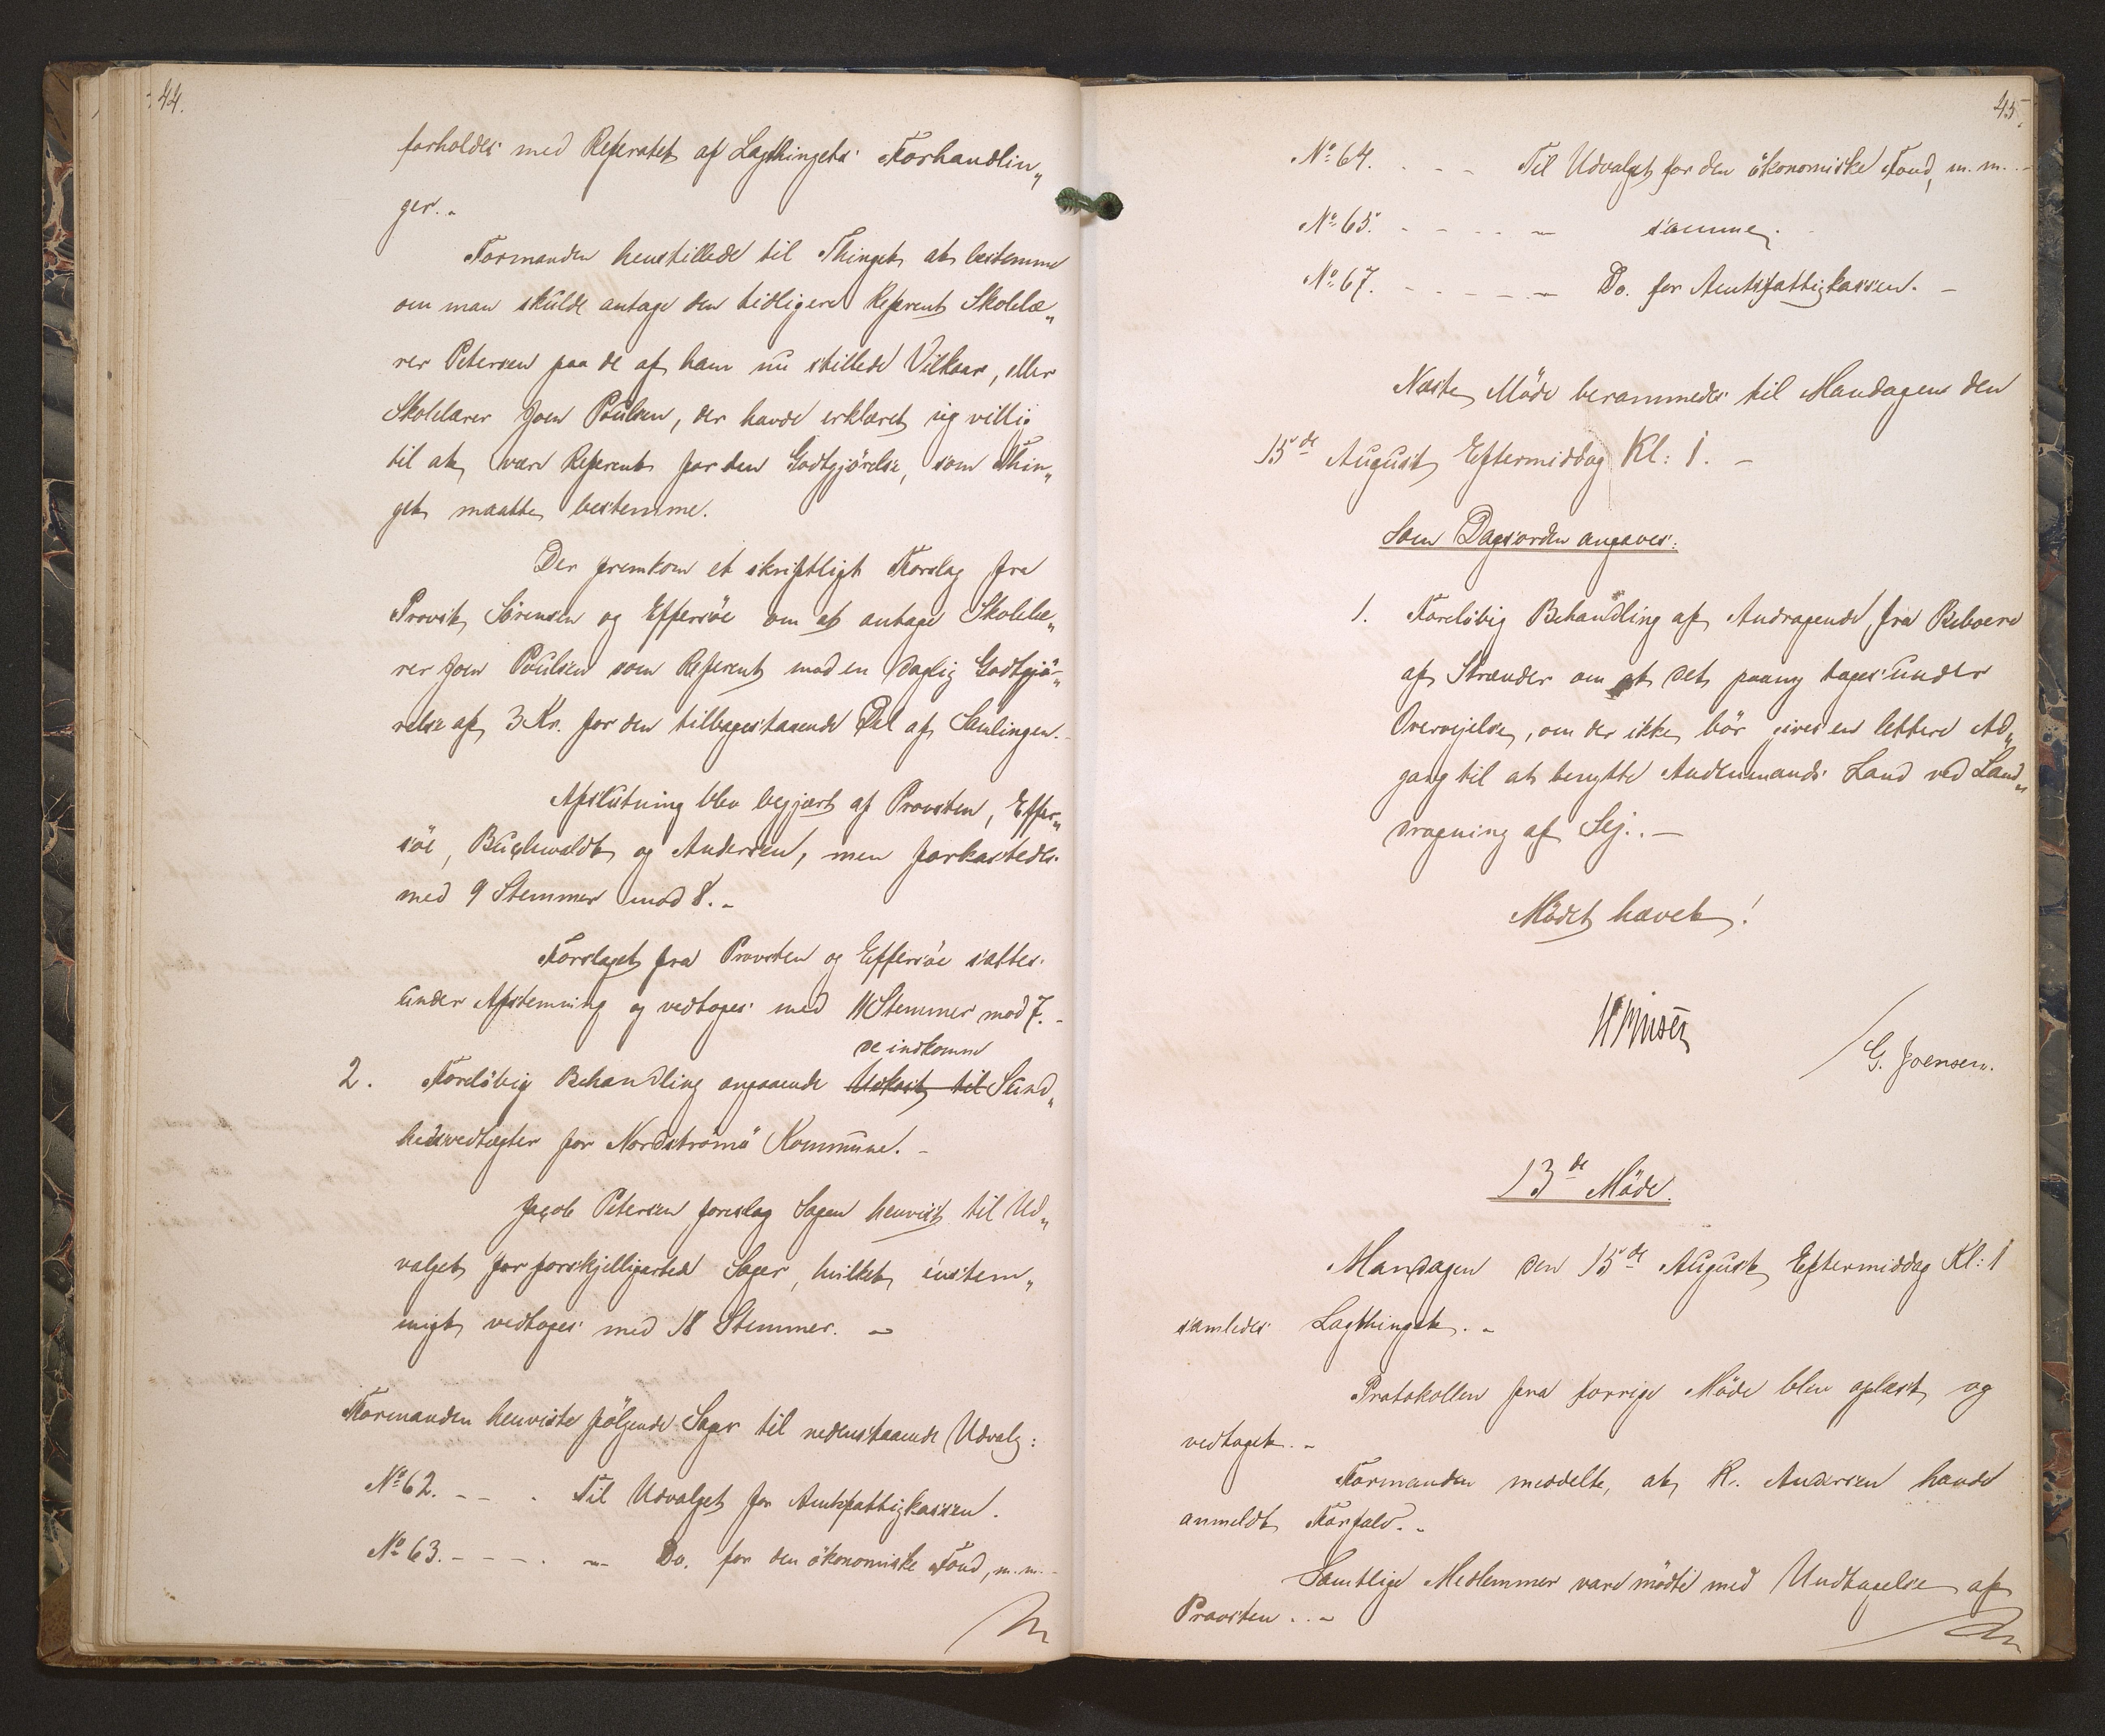 44.
forholdes med Referatet af Lagthingets Forhandlin„
ger. -
Formanden henstillede til Thinget at bestemme
om man skulde antage den tidligere Referent Skolelæ„
rer Petersen paa de af ham nu stillede Vilkaar, eller
Skolelærer Joen Poulsen, der havde erklæret sig villig
til at være Referent for den Godtgjörelse, som Thin„
get maatte bestemme.
Der fremkom et skriftligt Forslag fra
Provst Sörensen og Effersöe om at antage Skolelæ„
rer Joen Poulsen som Referent mod en daglig Godtgjö„
relse af 3 Kr. for den tilbagestaaende Del af Samlingen. -
Afslutning blev begjært af Provsten, Effer„
söe, Buchwaldt og Andersen, men forkastedes
med 9 Stemmer mod 8. -
Forslaget fra Provsten og Effersöe sattes
under Afstemning og vedtoges med 11 Stemmer mod 7. -
de indkomne
2. Foreløbig Behandling angaaende Udkast til Sund„
hedsvedtægter for Nordströmö Kommune. -
Jacob Petersen foreslog Sagen henvist til Ud„
valget for forskjelligartede Sager, hvilket enstem„
migt vedtoges med 18 Stemmer. -
Formanden henviste fölgende Sager til nedenstaaende Udvalg:
No 62. - - - Til Udvalget for Amtsfattigkassen.
No 63. - - - - - Do. for den ökonomiske Fond, m. m. -
45.
No 64. - - - Til Udvalget for den ökonomiske Fond, m. m. -
No 65. - - - - - samme.
No 67. - - - - - Do. for Amtsfattigkassen. -
Næste Möde berammedes til Mandagen den
15de August Eftermiddag Kl: 1. -
Som Dagsorden angaves:
1. Forelöbig Behandling af Andragende fra Beboere
af Strænder om at det paany tages under
Overvejelse, om der ikke bör gives en lettere Ad„
gang til at benytte Andenmands Land ved Land„
dragning af Sej. -
Mödet hævet!
G. Joensen.
13de Möde.
Mandagen den 15de August Eftermiddag Kl: 1
samledes Lagthinget. -
Protokollen fra forrige Möde blev oplæst og
vedtaget. -
Formanden meddelte, at K. Andersen havde
anmeldt Forfald. -
Samtlige Medlemmer vare mödte med Undtagelse af
Provsten. -